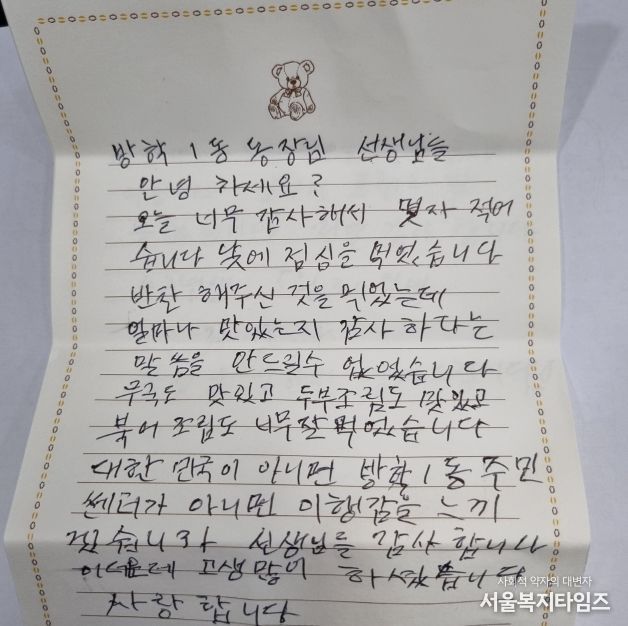 방학 1동 동장님 선생님들
안녕 하세요?
오늘 너무 감사해서 몇자 적어
습니다 낮에 점심을 먹었습니다
반찬 해주신 것을 먹었는데
얼마나 맛있는지 감사 하다는
말씀을 안드릴수 없었습니다
무국도 맛있고 두부조림도 맛있고
북어 조림도 너무잘 먹었습니다
대한 민국이 아니면 방학1동 주민
쎈터가 아니면 이행감을 느끼
겠습니까 선생님들 감사 합니다
더운데 고생많이 하셨습니다
사랑 합니다
사회적 약자의 대변자
서울복지타임즈